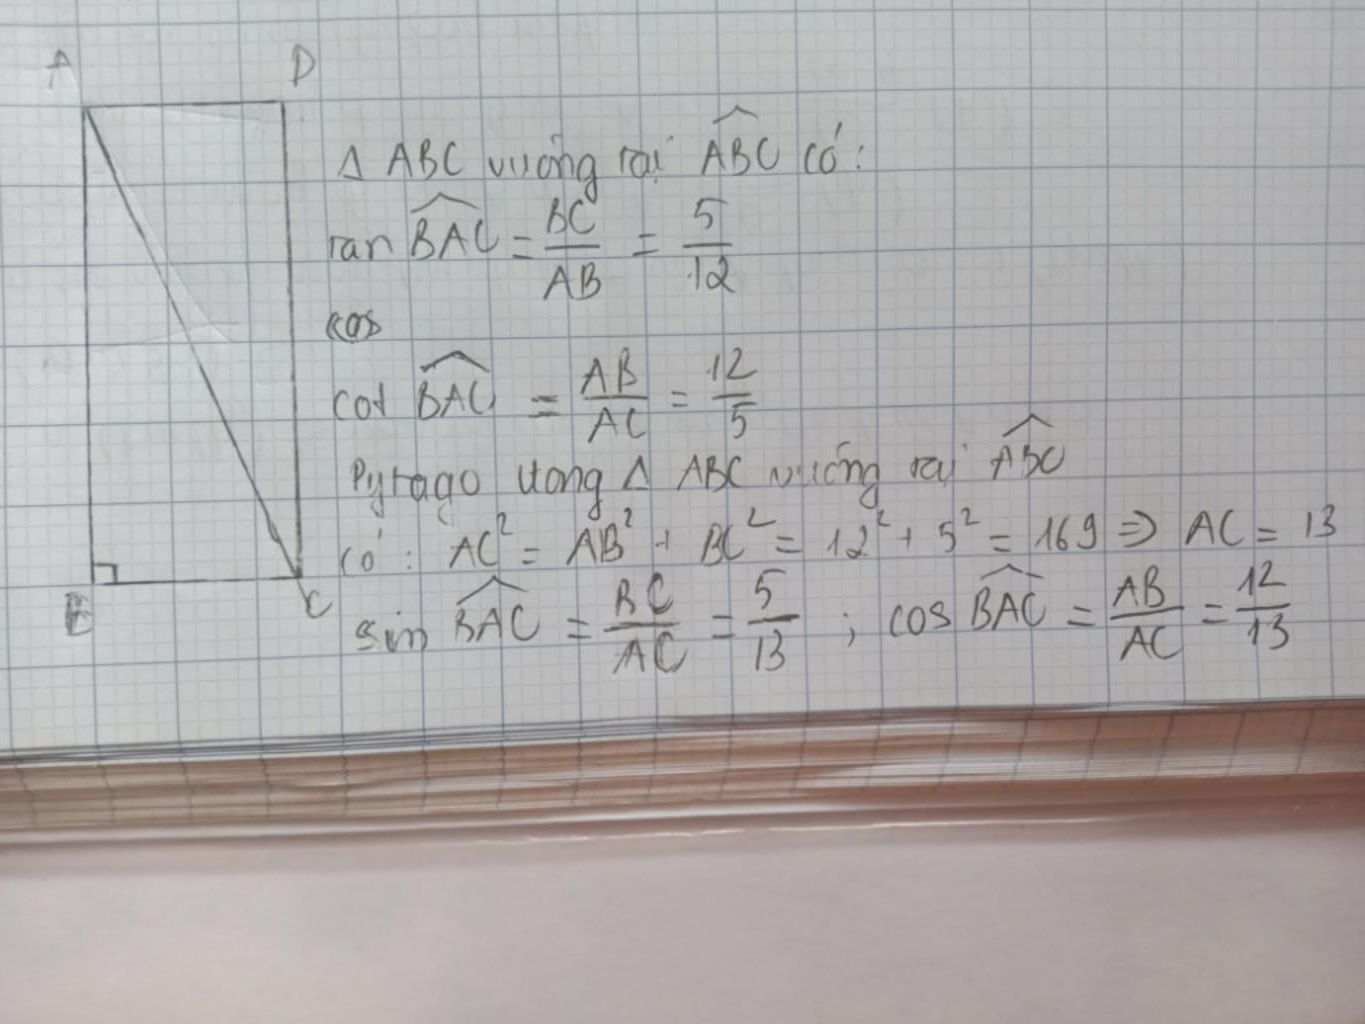 A
D
Δ ABC vuông tại \widehat{ABC} có:
tan \widehat{BAC} = \frac{BC}{AB} = \frac{5}{12}
cos
cot \widehat{BAC} = \frac{AB}{AC} = \frac{12}{5}
Pytago trong Δ ABC vuông tại \widehat{ABC}
có: AC² = AB² + BC² = 12² + 5² = 169 ⇒ AC = 13
B
C
sin \widehat{BAC} = \frac{BC}{AC} = \frac{5}{13} ; cos \widehat{BAC} = \frac{AB}{AC} = \frac{12}{13}